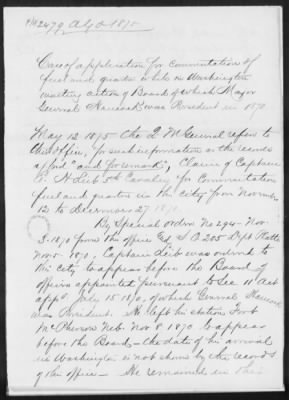 2479 A.G.O. 1875
Case of application for commutation of
fuel and quarters while in Washington
awaiting action of Board of which Major
General Hancock was President in 1870
May 12 1875 the Q M General refers to
this office, for such information as the records
afford "and for remark", Claim of Captain
E. H. Leib 5th Cavalry for Commutation
fuel and quarters in this city from November
12 to December 27 1870.
By Special orders No 294 - Nov
3-1870 from this office and S O 205 Dept Platte
Nov 5-1870, Captain Leib was ordered to
this city to appear before the Board of
officers appointed pursuant to Sec 11 Act
appd July 15 1870, of which General Hancock
was President. He left his station Fort
McPherson Neb. Nov 8 1870 to appear
before the Board - the date of his arrival
in Washington is not shown by the records
of this office - He remained in this